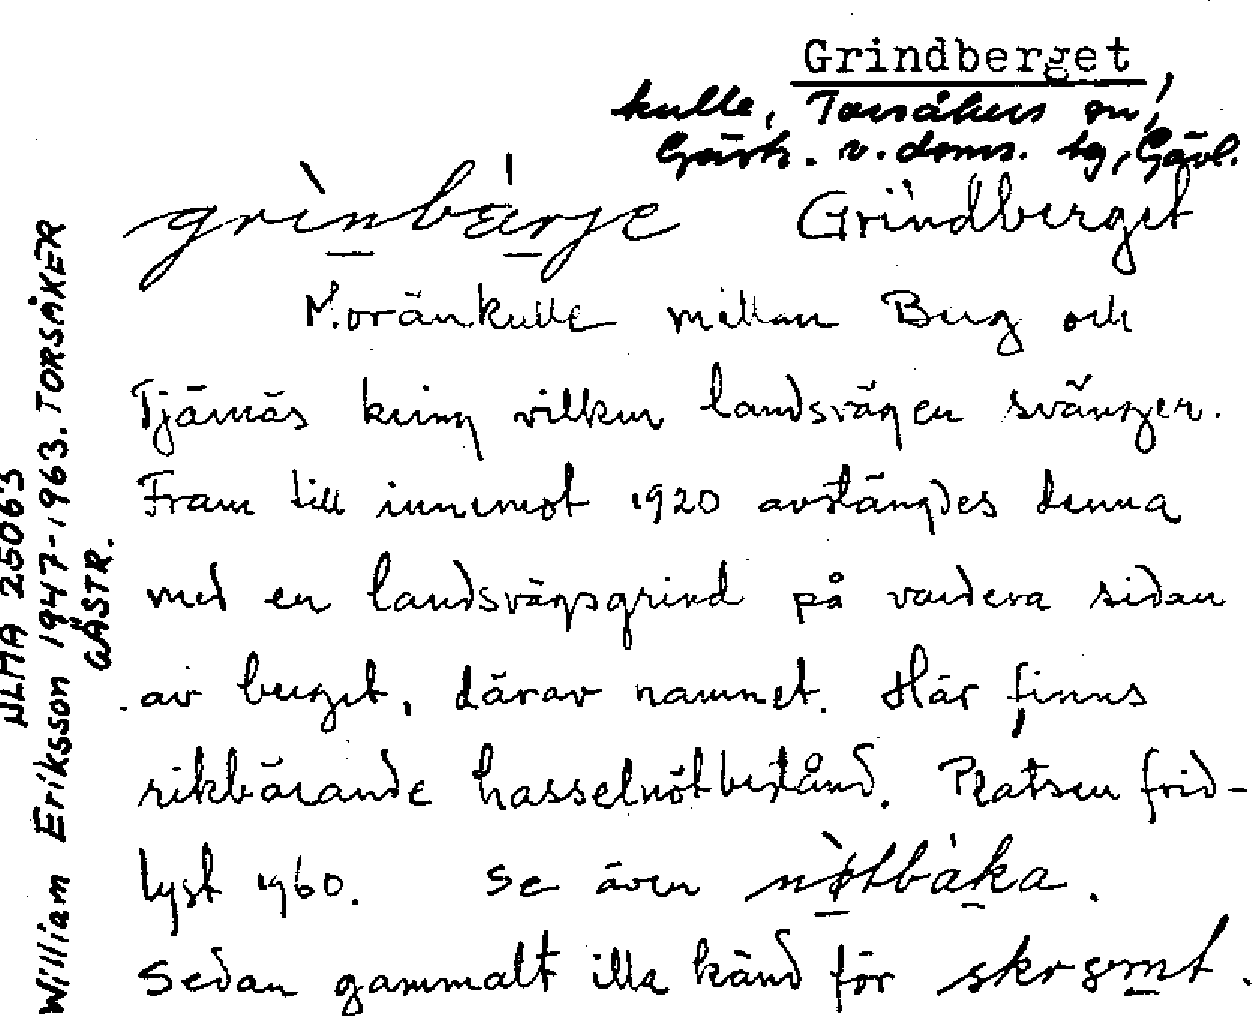 Grindberget
kulle, Torsåkers sn,
Gästr. v. doms. tg, Gävl.
grinbärje Grindberget
Moränkulle mellan Berg och
Tjärnäs kring vilken landsvägen svänger.
Fram till innemot 1920 avstängdes denna
med en landsvägsgrind på vardera sidan
av berget, därav namnet. Här finns
rikbärande hasselnötbestånd. Platsen frid-
lyst 1960. Se även nøtbàka.
Sedan gammalt illa känd för skrɵmt.
NLMA 25063
William Eriksson 1947-1963. TORSÅKER
GÄSTR.